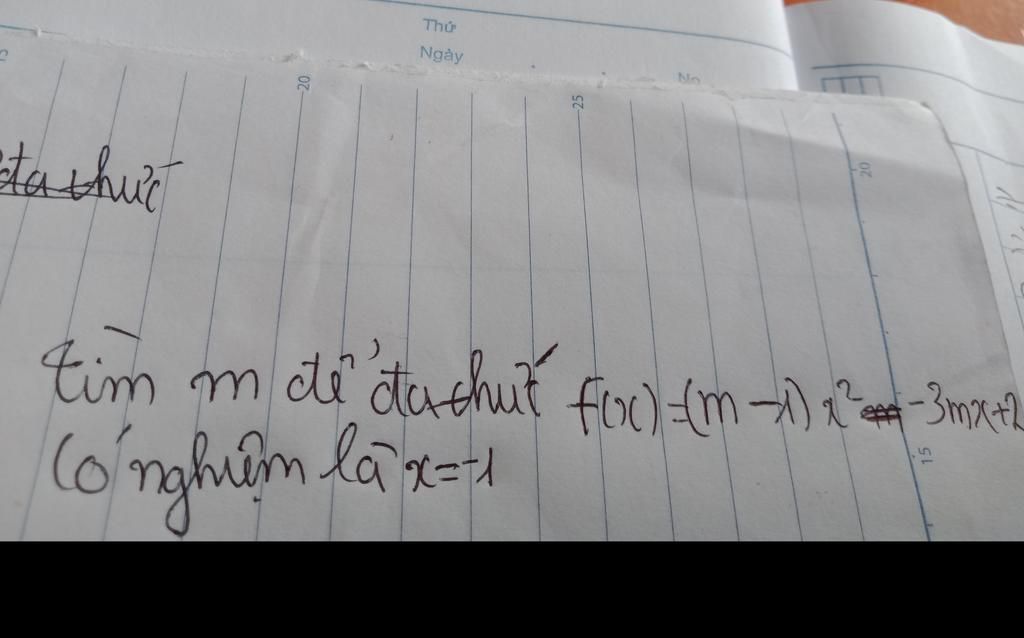 Thứ
Ngày
No
20
25
20
đa thức
tìm m để đa thức f(x) = (m - 1) x² - 3mx + 2
có nghiệm là x = -1
15